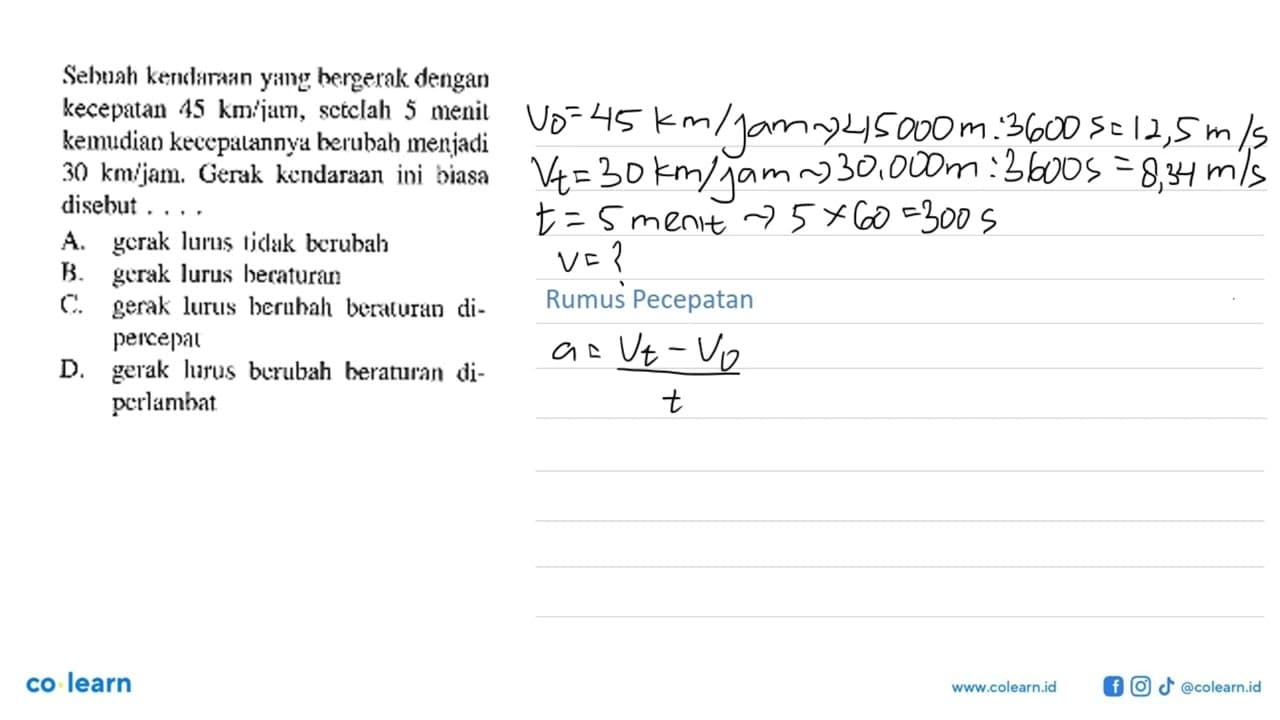 Sebuah kendaraan yang bergerak dengan
kecepatan 45 km/jam, setelah 5 menit
kemudian kecepatannya berubah menjadi
30 km/jam. Gerak kendaraan ini biasa
disebut . . . .
A. gerak lurus tidak berubah
B. gerak lurus beraturan
C. gerak lurus berubah beraturan di-
percepat
D. gerak lurus berubah beraturan di-
perlambat
V0 = 45 km/jam → 45000 m : 3600 s = 12,5 m/s
Vt = 30 km/jam → 30.000 m : 3600 s = 8,34 m/s
t = 5 menit → 5 × 60 = 300 s
V = ?
Rumus Pecepatan
a = Vt - V0
t
co learn
www.colearn.id
@colearn.id